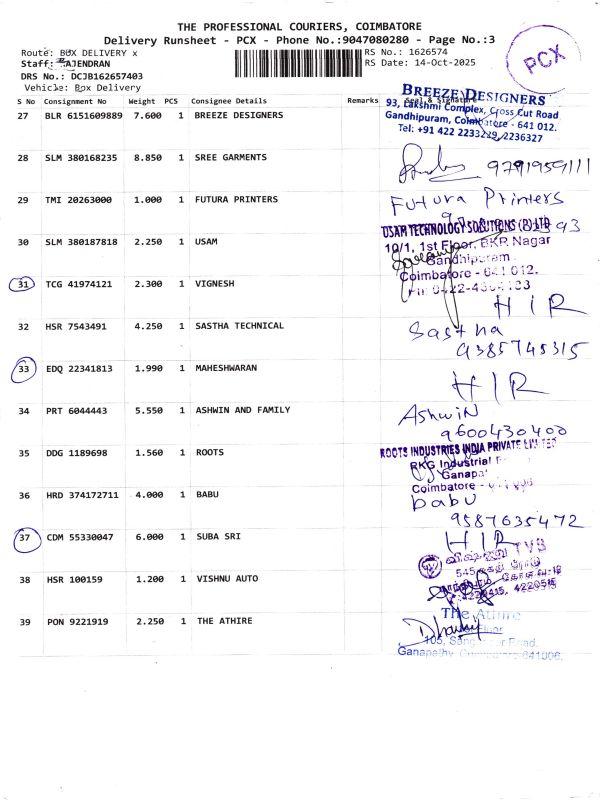 THE PROFESSIONAL COURIERS, COIMBATORE
Delivery Runsheet - PCX - Phone No.:9047080280 - Page No.:3
Route: BOX DELIVERY x
RS No.: 1626574
Staff: RAJENDRAN
RS Date: 14-Oct-2025
DRS No.: DCJB162657403
Vehicle: Box Delivery
PCX
S No Consignment No Weight PCS Consignee Details Remarks Seal & Signature
27 BLR 6151609889 7.600 1 BREEZE DESIGNERS
BREEZE DESIGNERS
93, Lakshmi Complex, Cross Cut Road
Gandhipuram, Coimbatore - 641 012.
Tel: +91 422 2233229, 2236327
28 SLM 380168235 8.850 1 SREE GARMENTS
9791959111
29 TMI 20263000 1.000 1 FUTURA PRINTERS
Futura Printers
30 SLM 380187818 2.250 1 USAM
USAM TECHNOLOGY SOLUTIONS (P) LTD
10/1, 1st Floor, BKR Nagar
Gandhipuram
Coimbatore - 641 012.
31 TCG 41974121 2.300 1 VIGNESH
H I R
32 HSR 7543491 4.250 1 SASTHA TECHNICAL
Sastha
9385745315
33 EDQ 22341813 1.990 1 MAHESHWARAN
H I R
34 PRT 6044443 5.550 1 ASHWIN AND FAMILY
Ashwin
9600430400
35 DDG 1189698 1.560 1 ROOTS
ROOTS INDUSTRIES INDIA PRIVATE LIMITED
RKG Industrial
Coimbatore -
36 HRD 374172711 4.000 1 BABU
babu
9587635472
37 CDM 55330047 6.000 1 SUBA SRI
H I R
38 HSR 100159 1.200 1 VISHNU AUTO
TVS
39 PON 9221919 2.250 1 THE ATHIRE
The Athire
Floor
105,
Ganapathy, Coimbatore 641006.